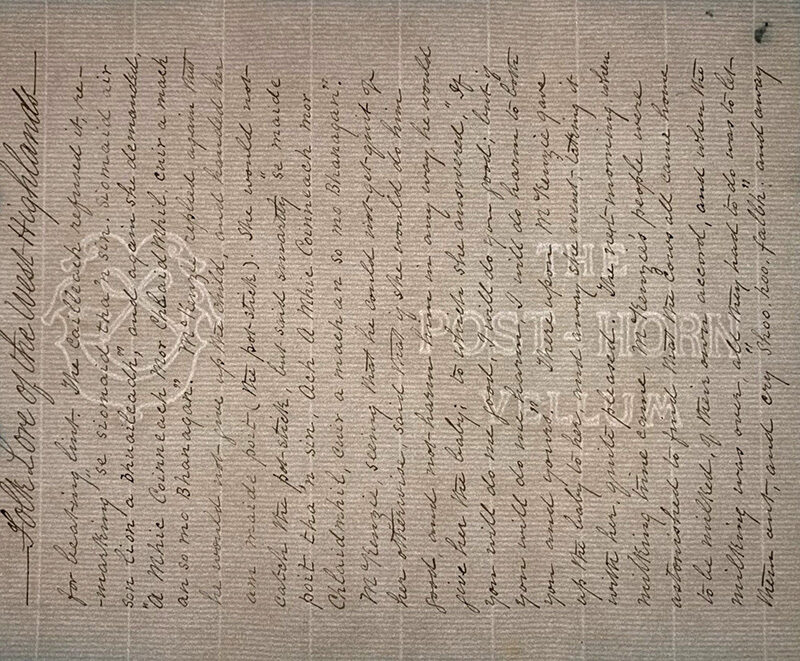 Folk Lore of the West Highlands
for beating lint. The Cailleach refused it, re-
-marking "Se siomaid tha'n sin. Siomaid air
son lion a bhuaileadh," and again she demanded,
"A Mhic Coinneach Mor Chlaidmhil, cuir a mach
an so mo Bhanagan". McKenzie replied again that
he would not give up the child, and handed her
am maide poit (the pot stick). She would not
catch the pot stick, but said smartly "Se maide
poit tha'n sin. Ach A Mhic Coinneach mor
Chlaidmhil, cuir a mach an so mo Bhanagan".
McKenzie seeing that he could not get quit of
her otherwise, said that if she would do him
good, and not harm him in any way, he would
give her the baby; to which she answered, "If
you will do me good, I will do you good, but if
you will do me harm, I will do harm to both
you and yours". There upon McKenzie gave
up the baby to her, and away she went taking it
with her, quite pleased. The next morning when
milking time came, McKenzie's people were
astonished to find that the cows all came home
to be milked, of their own accord, and when the
milking was over, all they had to do was to let
them out, and cry "Shoo, hoo, falbh": and away
THE
POST HORN
VELLUM